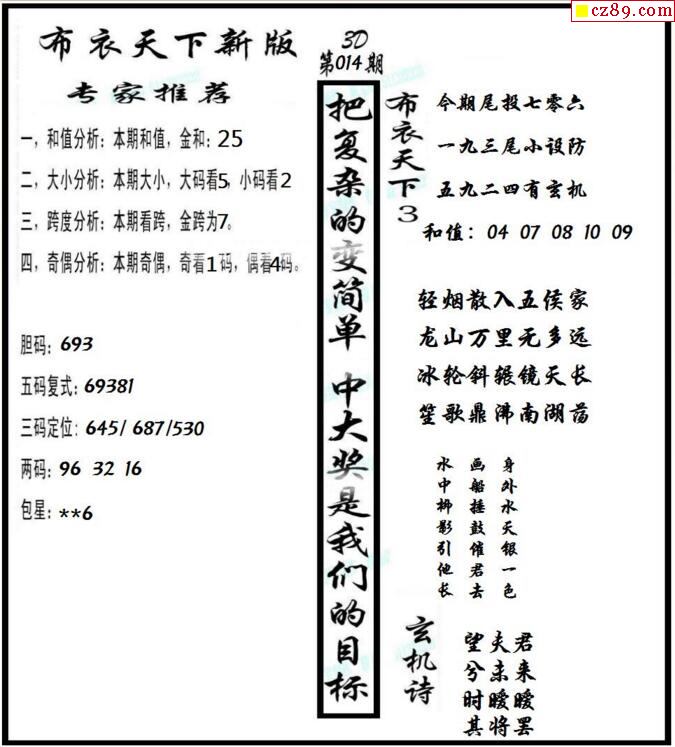 cz89.com
布衣天下新版
3D
第014期
专家推荐
一，和值分析：本期和值，金和：25
二，大小分析：本期大小，大码看5，小码看2
三，跨度分析：本期看跨，金跨为7。
四，奇偶分析：本期奇偶，奇看1码，偶看4码。
胆码：693
五码复式：69381
三码定位：645/ 687/530
两码：96 32 16
包星：**6
把复杂的变简单 中大奖是我们的目标
布衣天下3
今期尾投七零六
一九三尾小设防
五九二四有玄机
和值：04 07 08 10 09
轻烟散入五侯家
龙山万里无多远
冰轮斜辗镜天长
笙歌鼎沸南湖荡
身外水天银一色
画船捶鼓催君去
水中柳影引他长
玄机诗
望夫君
兮未来
时暧暧
其将罢